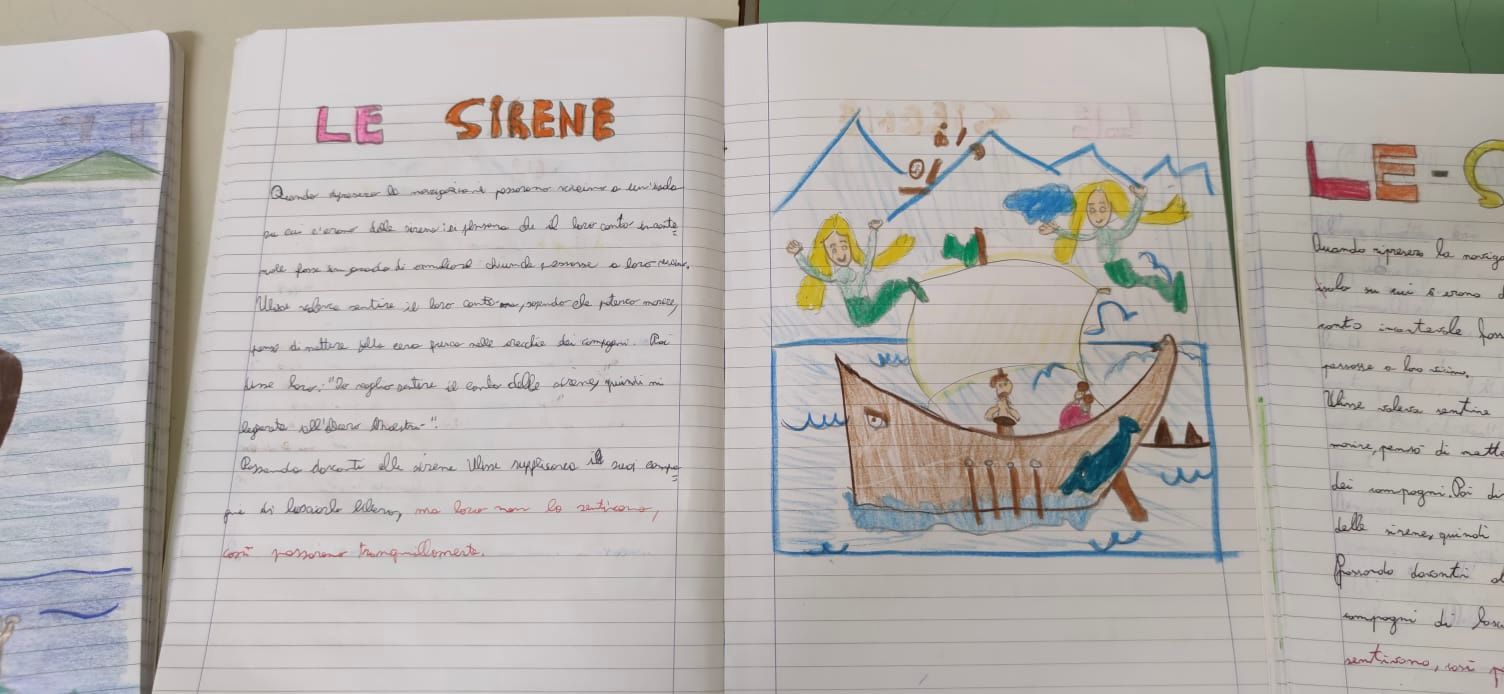 LE SIRENE
Quando ripresero la navigazione passarono vicino a un'isola
su cui c'erano delle sirene: si pensava che il loro canto incante
vole fosse in grado di chiunque passasse a loro vicino.
Ulisse voleva sentire il loro canto ma, sapendo che potevano morire,
pensò di mettere della cera nelle orecchie dei compagni. Poi
disse loro: "Io voglio sentire il canto delle sirene, quindi mi
legarete all'albero Maestro".
Passando davanti alle sirene Ulisse supplicava i suoi compa
gni di lasciarlo libero, ma loro non lo sentivano,
così passarono tranquillamente.
LE-
Quando ripresero la navig
isola su cui c'erano d
canto incantevole fos
passasse a loro vicino.
Ulisse voleva sentire
morire, pensò di mette
dei compagni. Poi di
delle sirene, quindi
Passando davanti
compagni di lasc
sentivano, così p